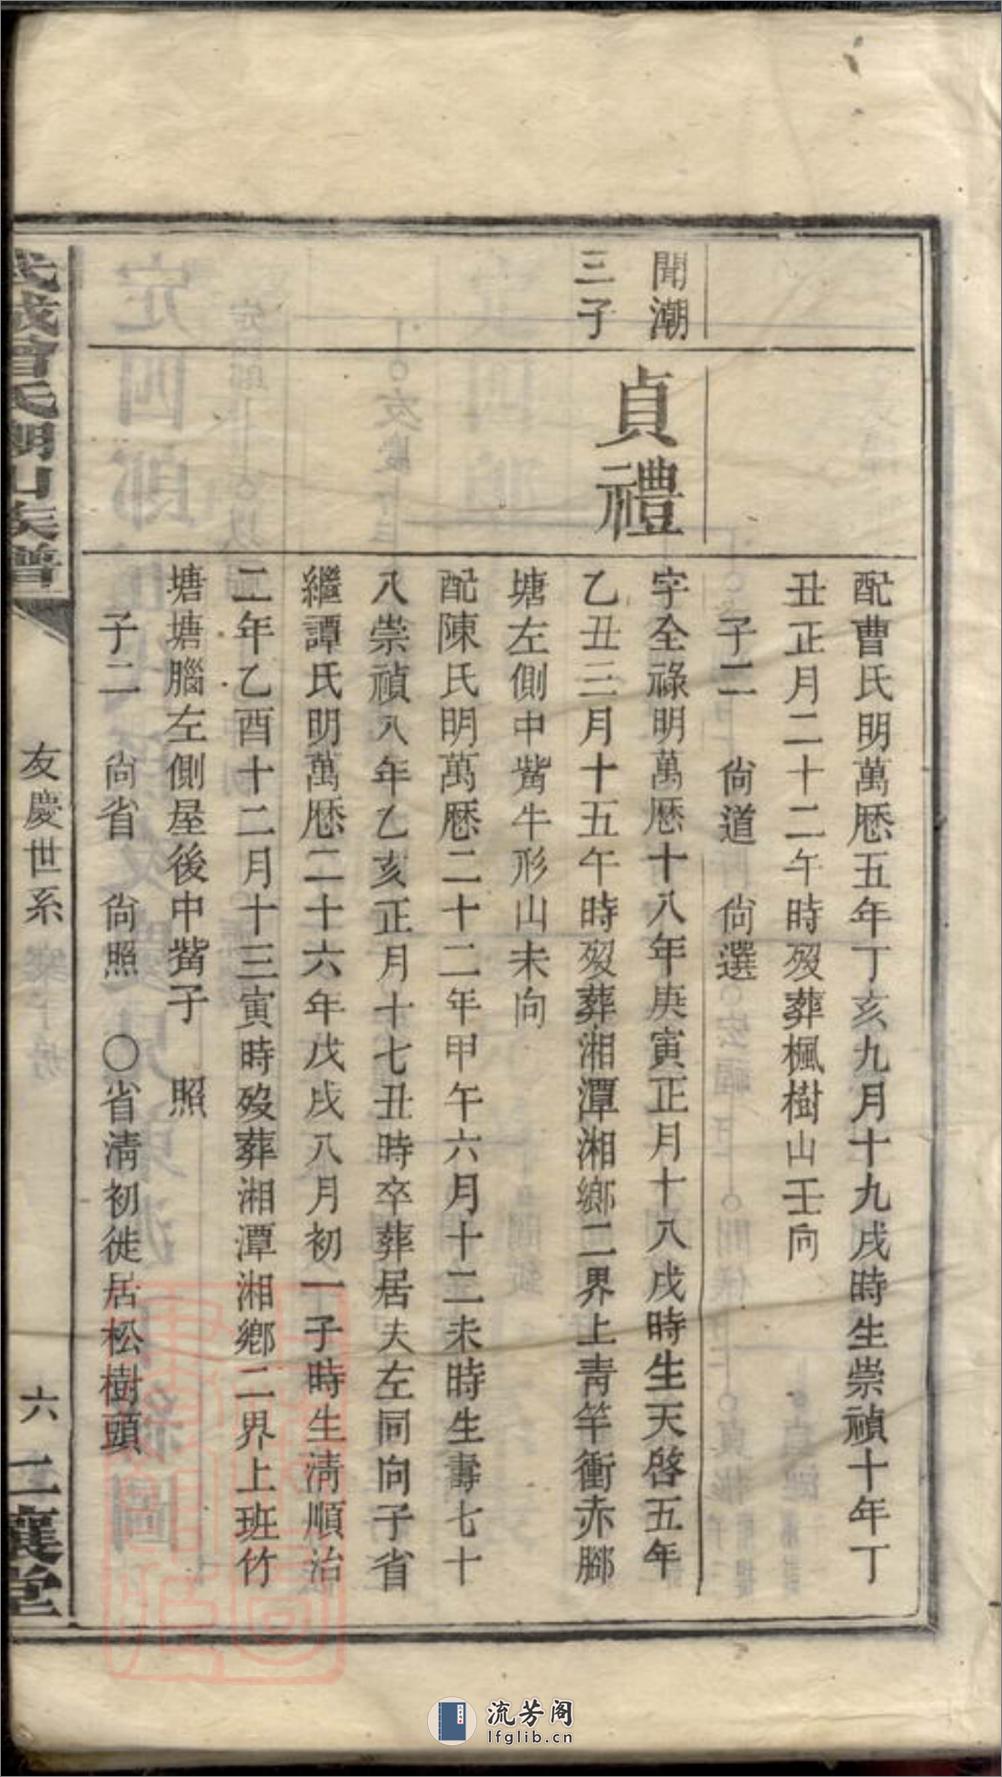 配曹氏明萬厯五年丁亥九月十九戌時生崇禎十年丁
丑正月二十二午時歿葬楓樹山壬向
子二 尙道 尙選
聞潮
三子
貞禮
字全祿明萬厯十八年庚寅正月十八戌時生天啓五年
乙丑三月十五午時歿葬湘潭湘鄉二界上靑竿衝赤腳
塘左側中觜牛形山未向
配陳氏明萬厯二十二年甲午六月十二未時生壽七十
八崇禎八年乙亥正月十七丑時卒葬居夫左同向子省
繼譚氏明萬厯二十六年戊戌八月初一子時生淸順治
二年乙酉十二月十三寅時歿葬湘潭湘鄉二界上班竹
塘塘腦左側屋後中觜子 照
子二 尙省 尙照 〇省淸初徙居松樹頭
武城曾氏湖山族譜
友慶世系
六
二襄堂
流芳阁
lfglib.cn